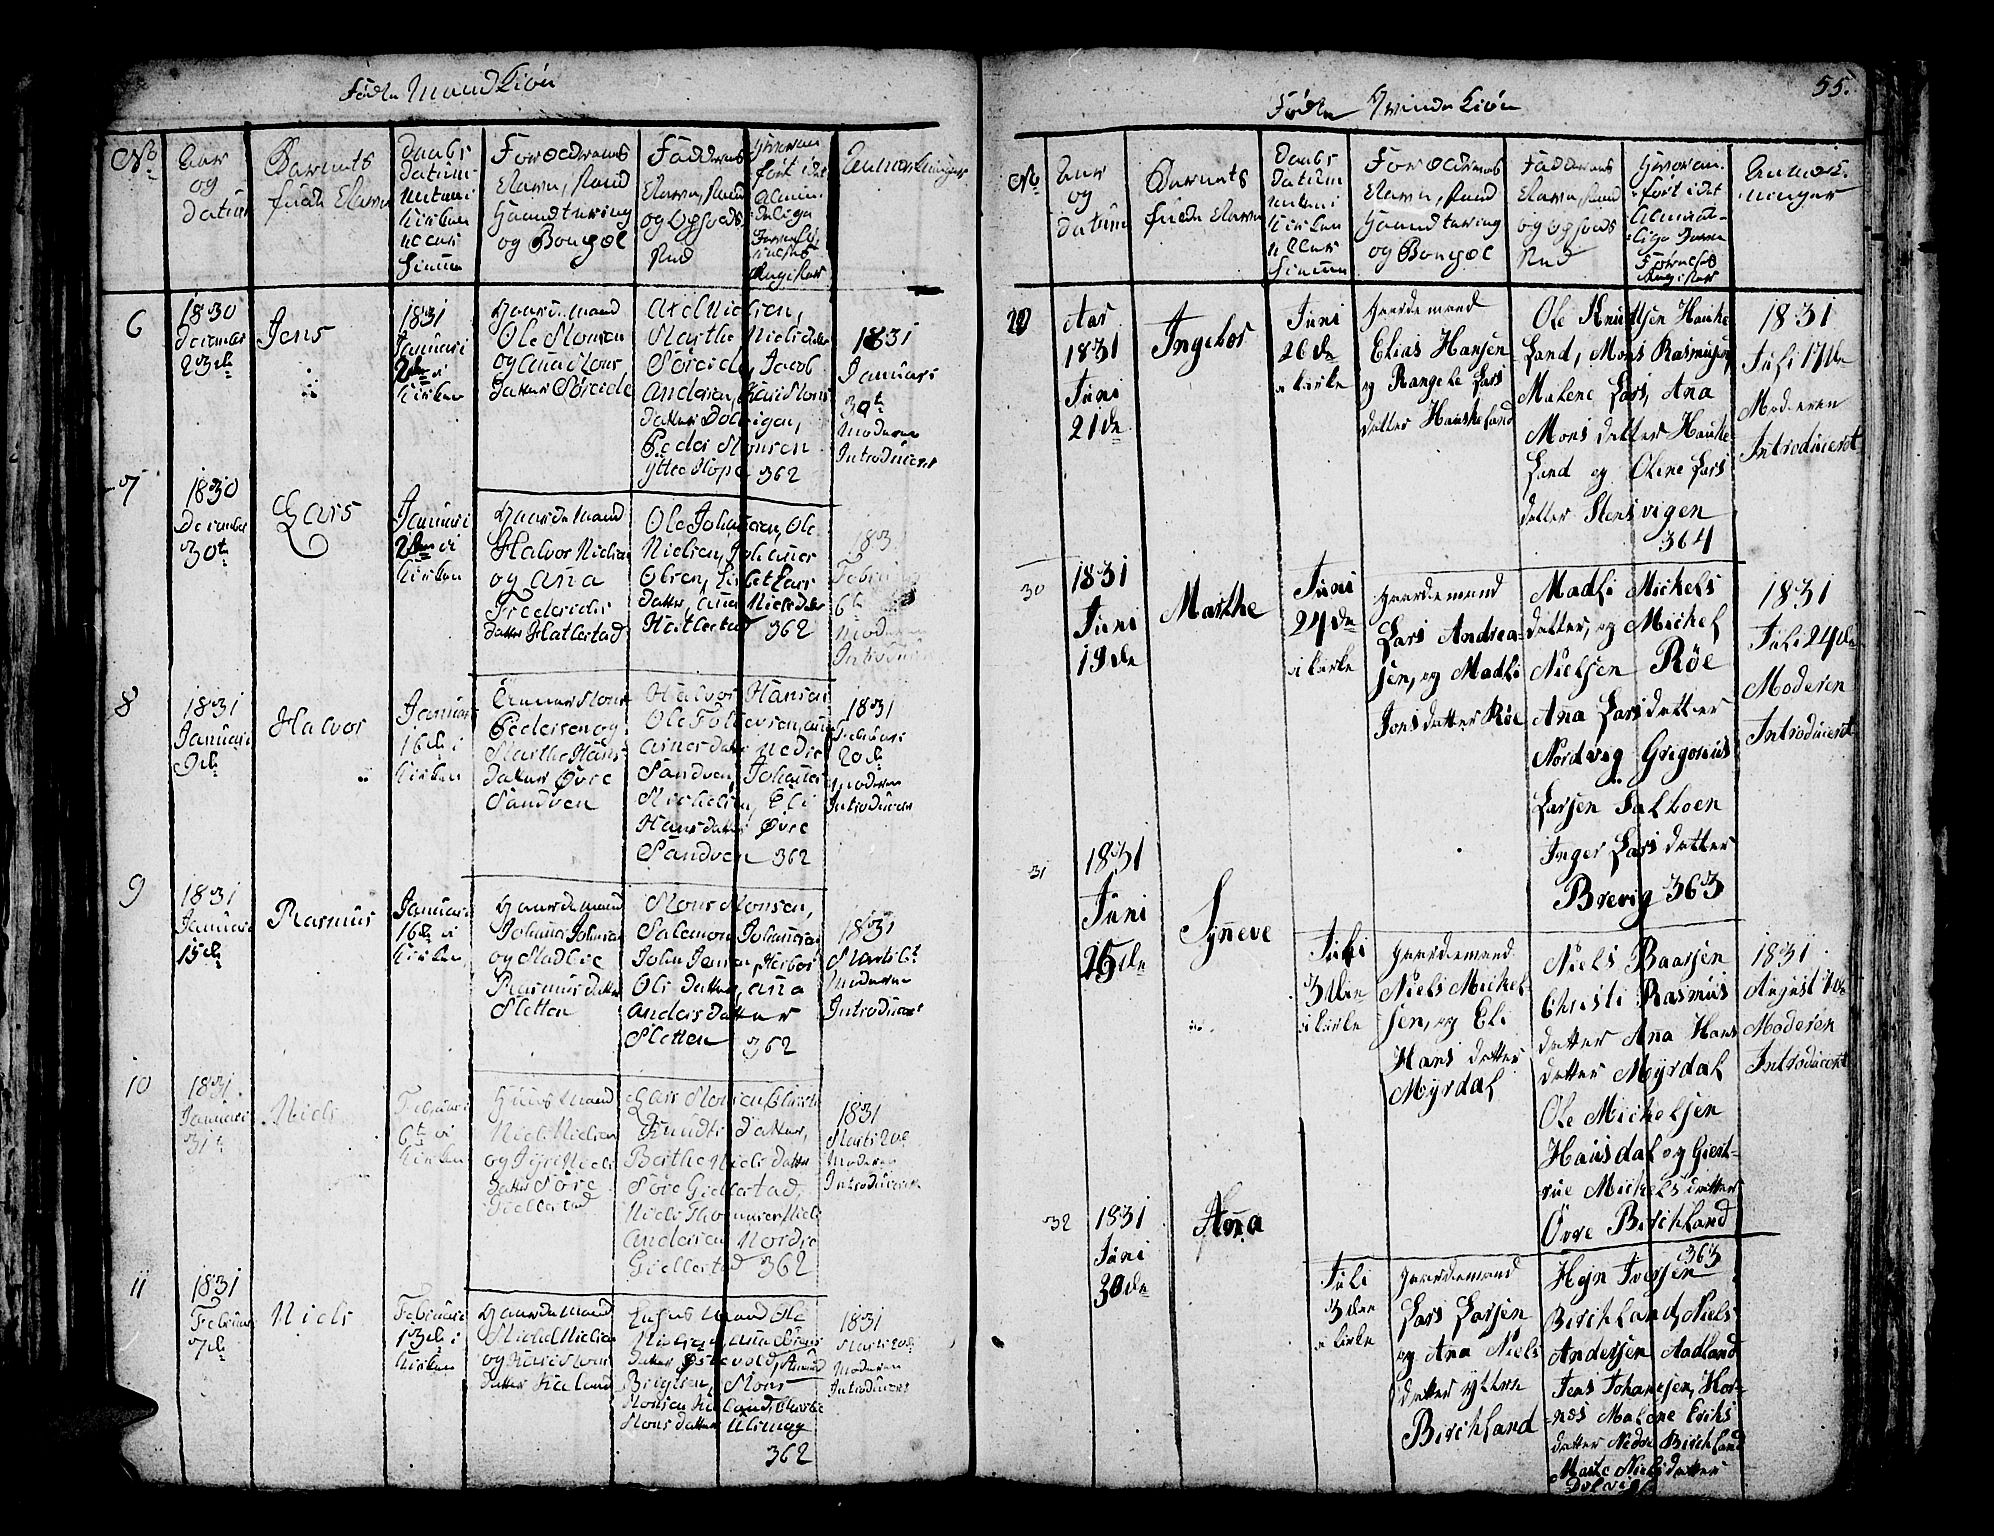 Fødte Mandkiøn
No
Aar
og
datum
Barnets
fulde Navn
Daabs
datum
enten i
Kirken
eller
hiemme
Forældrenes
Navn, Stand
Haandtering
og Bopæl
Faddernes
Navn, Stand
og Opholds
Sted
Hvoran
ført i det
Almin
delige
Jevnførelses
Register
Anmærkninger
6
1830
December
23de
Jens
1831
Januari
2den i
Kirken
Gaardemand
Ole Monsen
og Anna Mons
datter Søreide
Axel Nielsen,
Marthe Nielsdatter
Søreide, Jacob
Andersen, Kari Mons
datter Dolvigen,
Peder Monsen
ytre Hope 362
1831
Januari
30te
Moderen
Introduceret
7
1830
December
30te
Lars
Januari
2den i
Kirken
Gaardemand
Halvor Nielsen
og Anna
Frederichs
datter Hatlestad
Ole Johannesen, Ole
Nielsen, Johannes
Olsen, Lisbet Lars
datter, Anna Nielsdatter
Hatlestad 362
1831
Februari
6te
Moderen
Introduceret
8
1831
Januari
9de
Halvor
Januari
16de i
Kirken
Pedersen og
Marthe Hans
datter Øvre
Sandven
Halvor Hansen
Ole Tollevsen, Anna
Arnesdatter Nedre
Sandven, Johannes
Michelsen, Eli
Hansdatter Øvre
Sandven 362
1831
Februari
20de
Moderen
Introduceret
9
1831
Januari
15de
Rasmus
Januari
16de i
Kirken
Gaardemand
Johannes Johannesen
og Madlie
Rasmusdatter
Sletten
Mons Monsen,
Salomon Johannesen
John Jensen, Herbor
Olsdatter, Anna
Andersdatter
Sletten 362
1831
Marti 6te
Moderen
Introduceret
10
1831
Januari
31te
Niels
Februari
6te i
Kirken
Huusmand
Niels Nielsen
og Siri Niels
datter Søre
Giellestad
Lars Monsen
Knudts datter,
Berthe Nielsdatter
Søre Giellestad,
Andersen Nordre
Giellestad 362
1831
Marti 20de
Moderen
Introduceret
11
1831
Februari
7de
Niels
Februari
13de i
Kirken
Gaardemand
Michel Nielsen
og Kari Mons
datter Haeland
Mand Ole
Nielsen, Anna
datter Østevold,
Brigtsen, Mons
Monsen
Monsdatter
362
1831
Marti 20de
Moderen
Introduceret
Fødte Qvindekiøn
55.
No
Aar
og
datum
Barnets
fulde Navn
Daabs
Datum
enten i
Kirken
eller
hiemme
Forældrenes
Navn, Stand
Haandtering
og Bopæl
Faddernes
Navn, Stand
og Opholds
Sted
Hvoran-
ført i det
Almind-
elige Jevn
Førelses
Register
Anmærk-
ninger
29
Aar
1831
Juni
21de
Ingebor
Juni
26de
i kirke
Gaardemand
Elias Hansen
og Rangele Lars
datter Haukeland
Ole Knudtsen Hauke
Land, Mons Rasmusen,
Malene Lars, Ana
Mons datter Hauke
Land og Oline Lars
datter Stensvigen
364
1831
Juli 17de
Moderen
Introduceret
30
1831
Juni
19de
Marthe
Juni
24de
i kirke
Gaardemand
Lars Andrea-
sen, og Madli
Jonsdatter Røe
Madli Mickels
datter, og Mickel
Nielsen Røe
Aña Larsdatter
Nordvig Gregorius
Larsen Salboen
Inger Larsdatter
Brevig 363
1831
Juli 24de
Moderen
Introduceret
31
1831
Juni
25de
Syñeve
Juli
3den
i kirke
Gaardemand
Niels Mickel-
sen, og Eli
Hans datter
Myrdal
Niels Baarsen
Christi Rasmus
datter Aña Hans
datter Myrdal
Ole Mickelsen
Hausdal og Giert-
rue Mickelsdatter
Övre Birckeland
363
1831
August 7de
Moderen
Introduceret
32
1831
Juni
30de
Aña
Juli
3den
i kirke
Gaardemand
Lars Larsen
og Aña Niels
datter ytere
Birckland
Hejn Iversen
Birckland, Niels
Andersen Aadland
Jens Johanesen, Hor-
næs Malene Ericks
datter Nedre Birckland
Marte Nielsdatter
Dolvig